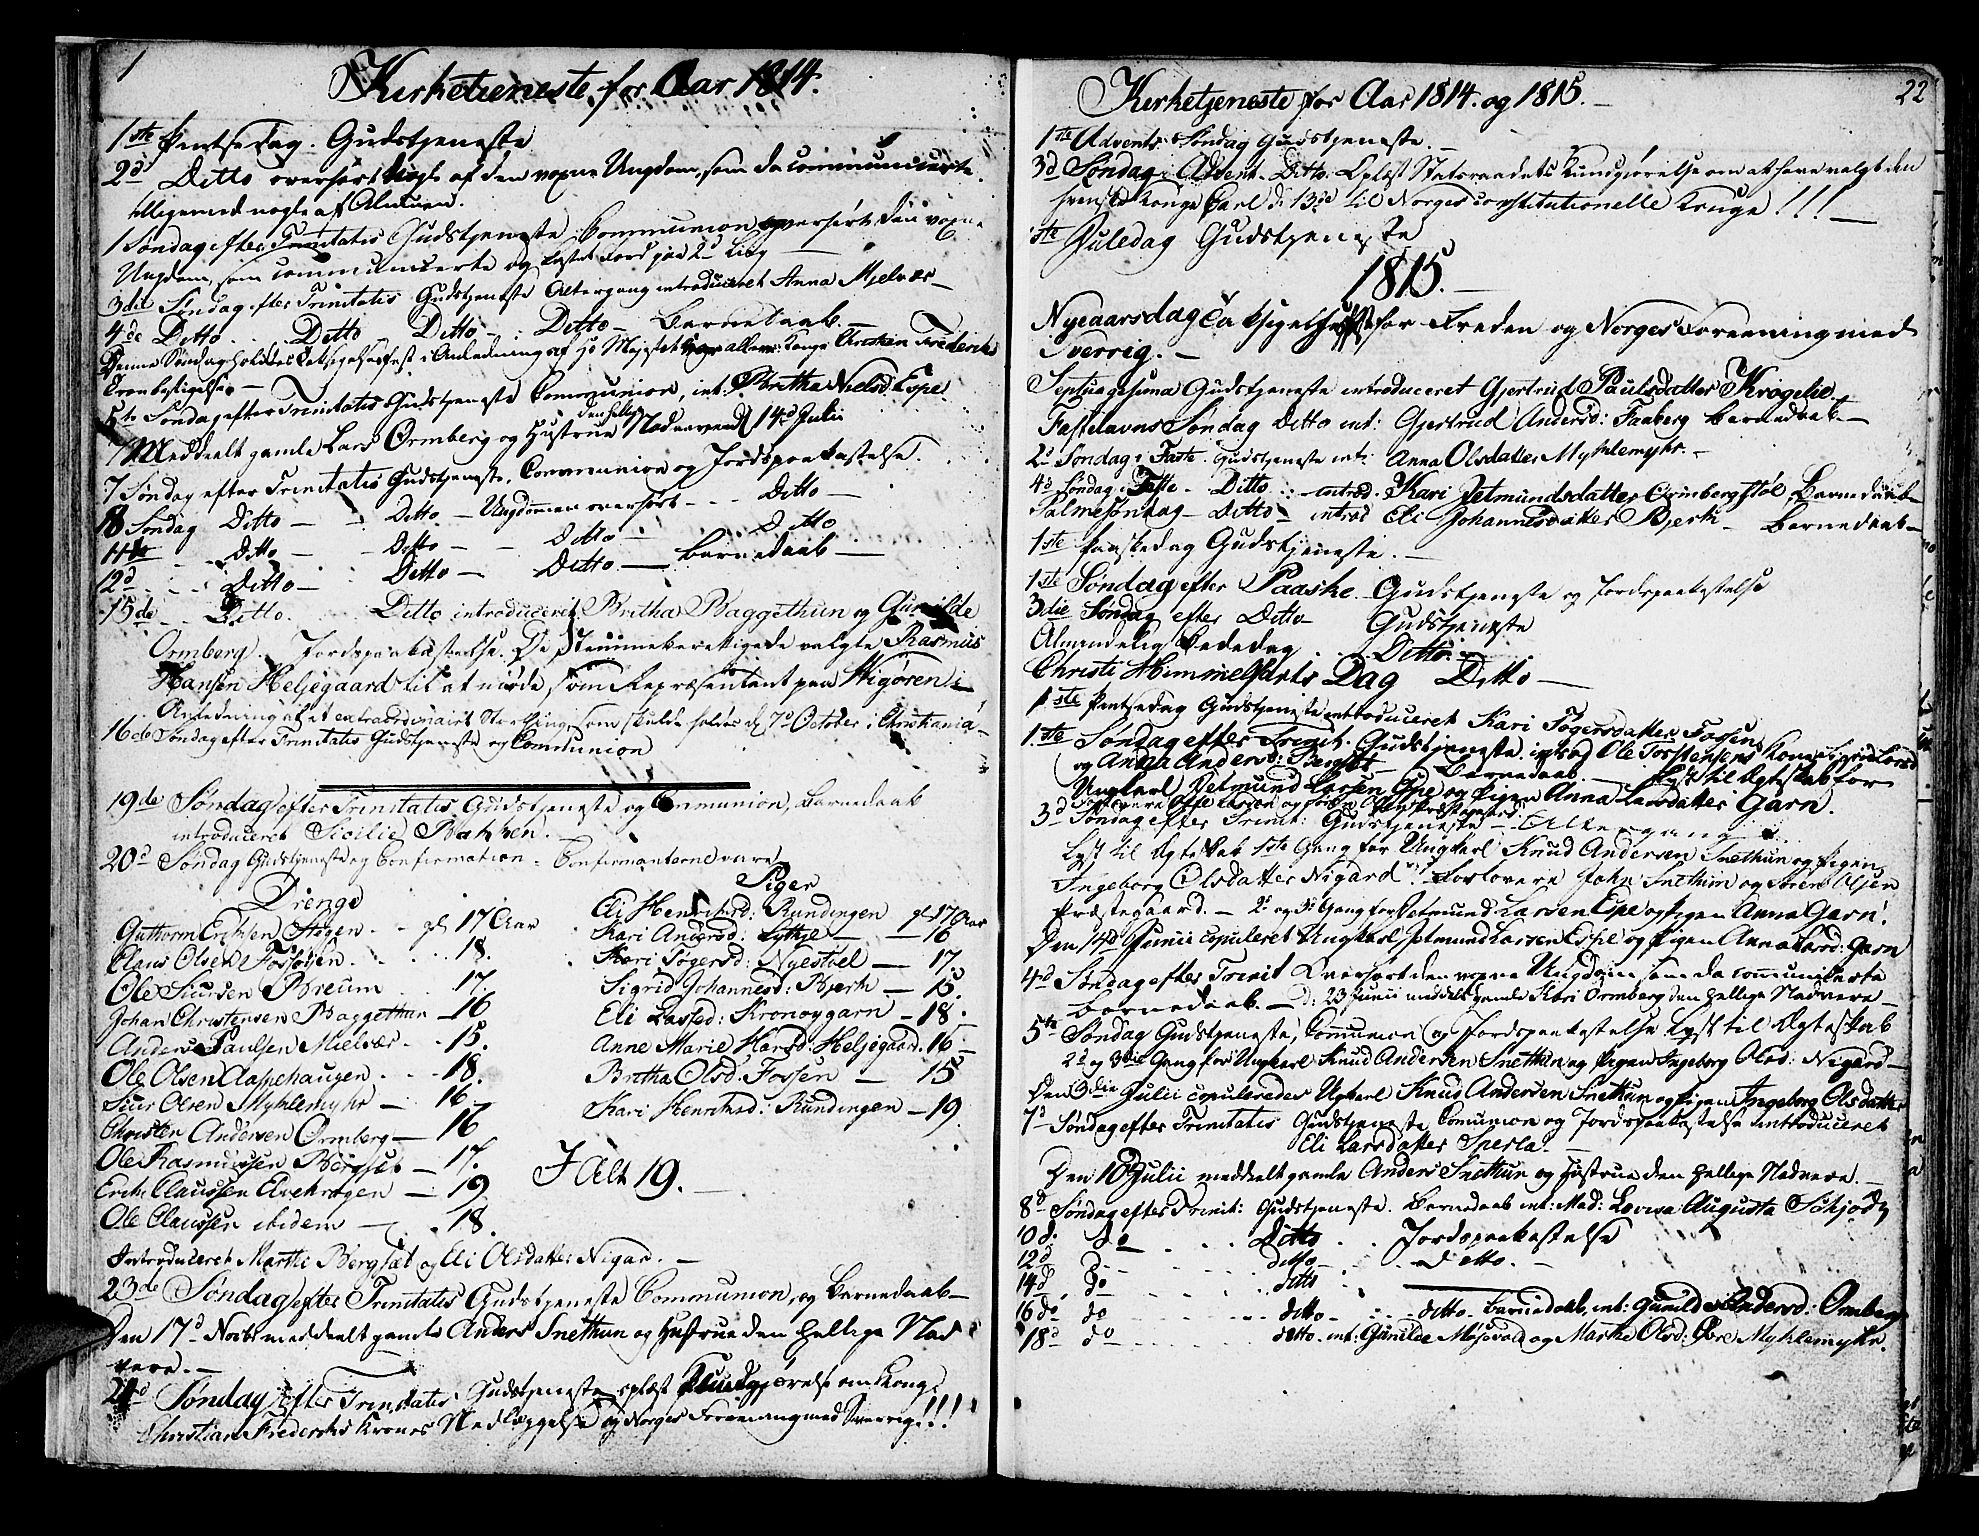 1
Kirketieneste for Aar 1814.
1ste Pintsedag. Gudstjeneste
2d Ditto overhørt nogle af den voxne Ungdom, som da communicerte
tilligemed nogle af Almuen.
1 Søndag efter Trinitatis Gudstjeneste Communion overhørte den voxne
Ungdom, som communicerte og kastet Jord paa 2d Liig
3die Søndag efter Trinitatis Gudstjeneste Altergang introduceret Anna Mjelvær
4de Ditto Ditto Ditto Ditto Barnedaab
Denne Søndag holdtes Taksigelsesfest i Anledning af Hs Majestet vores allern: Konge Christian Frederiks
Tronbestigelse
5te Søndag efter Trinitatis Gudstjeneste Communion, int: Britha Nielsd Espe
Meddeelt gamle Lars Ormberg og Hustrue den hellige Nadvere d 14d Julii
7 Søndag efter Trinitatis Gudstjeneste, Communion og Jordspaakastelse.
18 Søndag Ditto Ditto Ungdommen overhørt Ditto
11te Ditto Ditto Ditto Ditto
12d Ditto Ditto Ditto Barnedaab
15de Ditto Ditto introduceret Britha Baggethun og Gunilde
Ormberg. Jordspaakastelse. De Stemmeberettigede valgte Rasmus
Hansen Heljegaard til at møde som Repræsentant paa Wigøren i
Anledning af et extraordinairt Storthing som skulde holdes d 7d October i Christiania
16de Søndag efter Trinitatis Gudstjeneste og Communion
19de Søndag efter Trinitatis Gudstjeneste og Communion, Barnedaab
introduceret Sicilie Bahten.
20d Søndag Gudstjeneste og Confirmation. Confirmanterne vare
Drenge
Guthorm Erichsen Stegen gl 17 Aar
Claus Olsen Fosseyen 18.
Ole Siursen Breum 17.
Johan Christensen Baggethun 16
Anders Paulsen Mielvær 15.
Ole Olsen Aappehaugen 18.
Siur Olsen Myhlemyhr 16
Christen Andersen Ormberg 16
Ole Rasmussen Bergset 17.
Erich Claussen Elvekrogen 19
Ole Claussen ibidem 18.
Piger
Eli Henrichsd: Rundingen gl 17 Aar
Kari Andersd: Lythje 16
Kari Tøgersd: Nyestuel 17.
Sigrid Johannesd: Bjerk 15.
Eli Lassed: Kronoygarn 18.
Anne Marie Hansd: Heljegaard 16
Britha Olsd: Fossen 15
Kari Henrichsd: Rundingen 19.
I Alt 19.
Introduceret Marthe Bergset og Eli Olsdatter Nigar.
23de Søndag efter Trinitatis Gudstjeneste Communion, og Barnedaab
Den 17d Novbr meddeelt gamle Anders Snethun og Hustrue den hellige Nad
vere.
24d Søndag efter Trinitatis Gudstjeneste oplæst Kundgjørelse om Kong
Christian Frederiks Krones Nedlæggelse og Norges Foreening med Sverrig!!!
22
Kirketjeneste for Aar 1814. og 1815.
1ste Advents Søndag Gudstjeneste.
3d Søndag i Advent Ditto. Oplæst Statsraadets Kundgjørelse om at have valgt den
svenske Konge Carl d: 13de til Norges constitutionelle Konge!!!
1ste Juledag Gudstjeneste
1815.
Nyeaarsdag Taksigelsesfest for Freden og Norges Foreening med
Sverrig.
Septuagesima Gudstjeneste introduceret Gjertrud Paulsdatter Krogelie
Fastelavns Søndag Ditto int: Gjertrud Andersd: Faaberg Barnedaab
2d Søndag i Faste. Gudstjeneste int: Anna Olsdatter Myhlemyhr.
4d Søndag i Faste Ditto introd. Kari Jetmundsdatter Ormbergstøl Barnedaab
Palmesøndag Ditto introd Eli Johannesdatter Bjerk Barnedaab
1ste Paaskedag Gudstjeneste.
1ste Søndag efter Paaske Gudstjeneste og Jordspaakastelse
3die Søndag efter Ditto Gudstjeneste
Almindelig Bededag Ditto
Christi Himmelfarts Dag Ditto
1ste Pintsedag Gudstjeneste introduceret Kari Tøgersdatter Fossen
1.ste Søndag efter Trinit. Gudstjeneste. introd Ole Torstensens Kone Sigrid Larsd
og Anna Andersd: Bergset Barnedaab. Lyst til Ægteskab for
Ungkarl Jetmund Larsen Espe og Pigen Anna Larsdatter Garn.
3d Søndag efter Trinit: Gudstjeneste Altergang
Lyst til Ægteskab 1ste Gang for Ungkarl Knud Andersen Snethun og Pigen
Ingeborg Olsdatter Nigard. Forlovere John Snethun og Søren Olsen
Præstegaard. 2d og 3d Gang for Jetmund Larsen Espe og Pigen Anna Garn.
Den 14d Junii copuleret Ungkarl Jetmund Larsen Espe og Pigen Anna Larsd: Garn
4d Søndag efter Trinit Overhørt den voxne Ungdom som da communicerte
Barnedaab. d: 23 Junii meddelt gamle Kari Ormberg den hellige Nadvere
5te Søndag Gudstjeneste, Communion og Jordspaakastelse Lyst til Ægteskab
2d og 3die Gang for Ungkarl Knud Andersen Snethun og Pigen Ingeborg Olsd: Nigard
Den 3die Julii copuleredes Ungkarl Knud Andersen Snethun og Pigen Ingeborg Olsdatter
7d Søndag efter Trinitatis Gudstjeneste Communion og Jordspaakastelse introduceret
Eli Larsdatter Sperla.
Den 10d Julii meddeelt gamle Anders Snethun og Hustrue den hellige Nadvere.
8d Søndag efter Trinit: Gudstjeneste. Barnedaab int: Mad: Lovisa Augusta Schjødt
10d. do Ditto Jordspaakastelse
12d do ditto ditto.
14d do ditto
16 do do ditto ditto Barnedaab, int: Gunilde Andersd: Ormberg
18d do ditto int: Gunilde Møsevold og Marthe Olsd: Øvre Myhlemyhr.